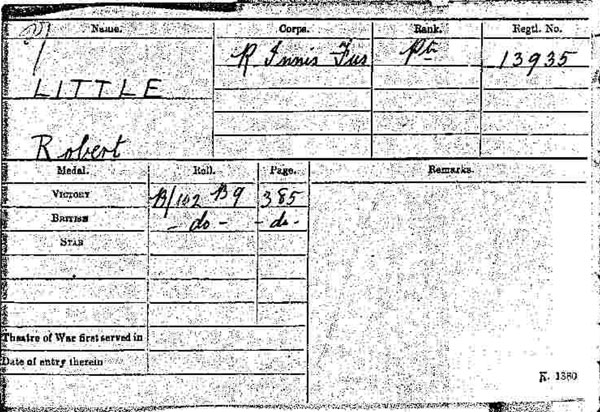 Name. Corps. Rank. Regtl. No.
R Innis Fus Pte 13935
LITTLE
Robert
Medal. Roll. Page. Remarks.
VICTORY B/102 B9 385
BRITISH - do - - do -
STAR
Theatre of War first served in
Date of entry therein
K. 1380